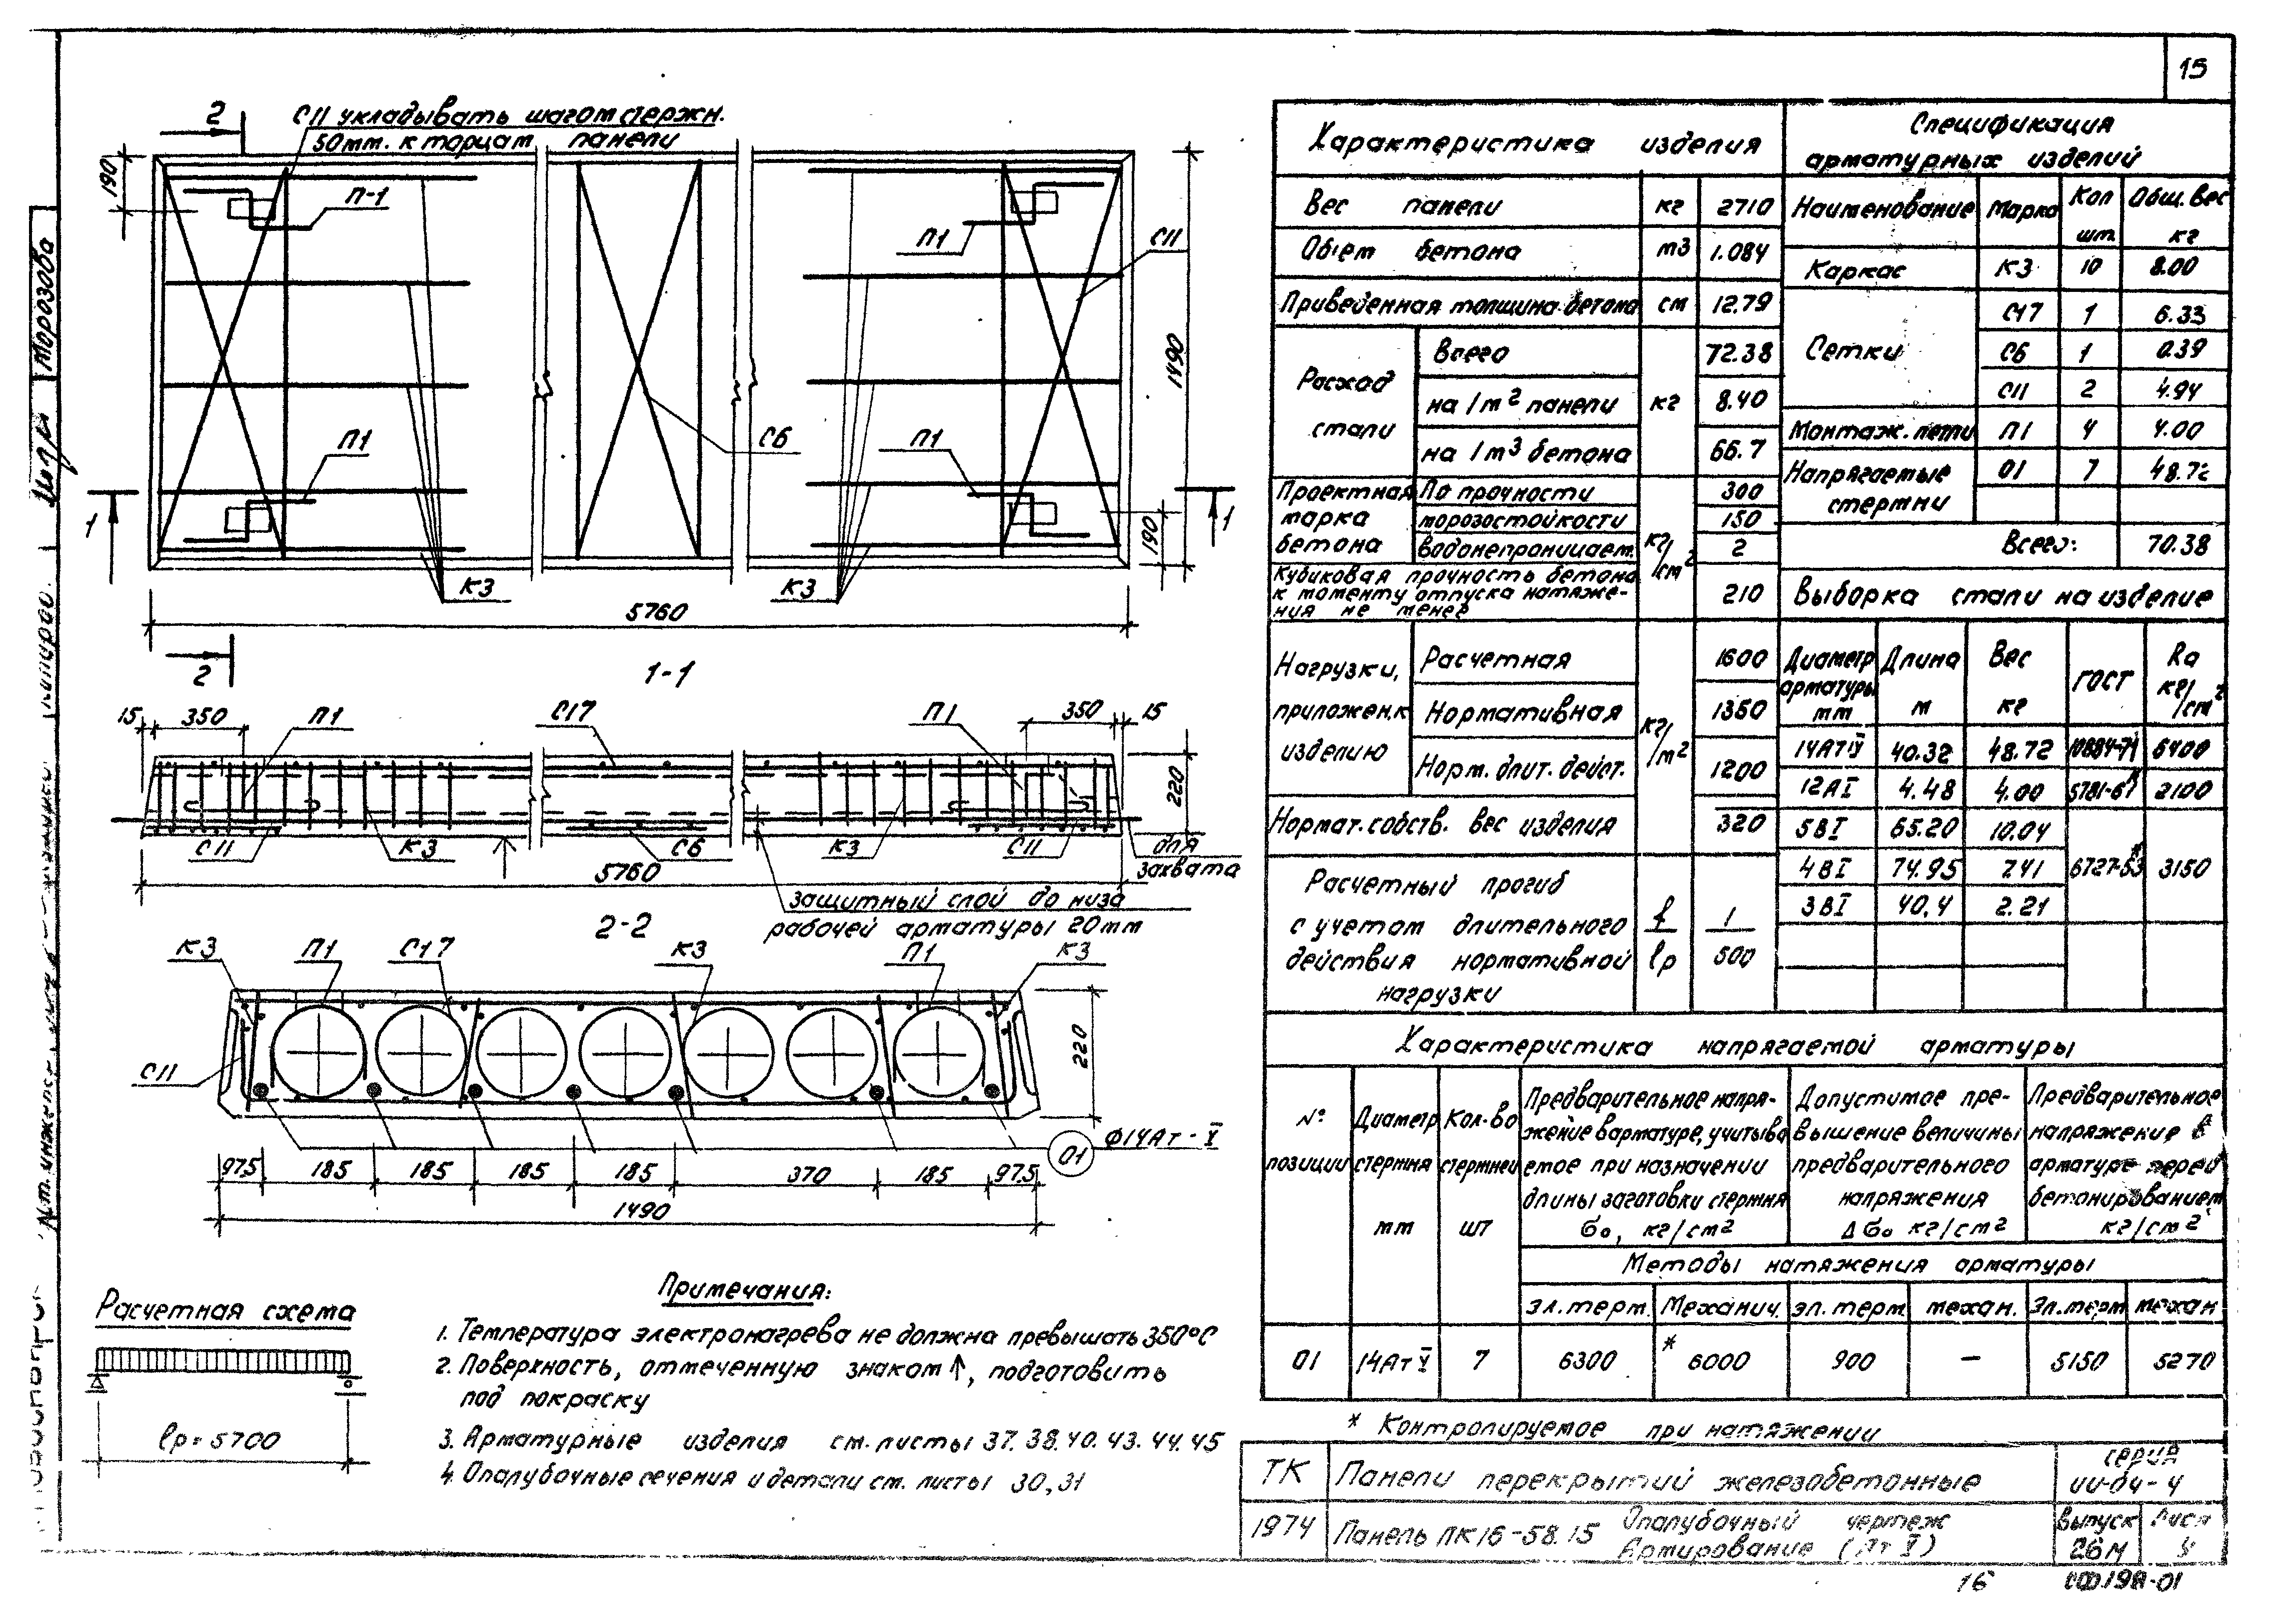 15
2
С11 укладывать шагом стержн.
50мм. к торцам панели
190
П-1
П1
С11
1490
П1
С6
П1
190
1
1
К3
К3
5760
2
1-1
15
350
П1
С17
П1
350
15
220
С11
К3
С6
К3
С11
для
захвата
5760
защитный слой до низа
рабочей арматуры 20мм
2-2
К3
П1
С17
К3
П1
К3
С11
220
01
ф14Ат-V
97.5
185
185
185
185
370
185
97.5
1490
Расчетная схема
lр=5700
Примечания:
1. Температура электронагрева не должна превышать 350°С
2. Поверхность, отмеченную знаком ↑, подготовить
под покраску
3. Арматурные изделия см. листы 37.38.40.43.44.45
4. Опалубочные сечения и детали см. листы 30,31
Характеристика изделия
Вес панели кг 2710
Объем бетона м3 1.084
Приведенная толщина бетона см 12.79
Расход стали
Всего 72.38
на 1м2 панели кг 8.40
на 1м3 бетона 66.7
Проектная марка бетона
По прочности 300
морозостойкости 150
водонепроницаем. 2
кг/см2
Кубиковая прочность бетона
к моменту отпуска натяже-
ния не менее
210
Нагрузки, приложен. к изделию
Расчетная 1600
Нормативная 1350
Норм. длит. дейст. 1200
кг/м2
Нормат. собств. вес изделия 320
Расчетный прогиб
с учетом длительного
действия нормативной
нагрузки
f/lр
1/500
Спецификация
арматурных изделий
Наименование Марка Кол шт. Общ. Вес кг
Каркас К3 10 8.00
Сетки
С17 1 6.33
С6 1 0.39
С11 2 4.94
Монтаж. петли П1 4 4.00
Напрягаемые стержни 01 7 48.72
Всего: 70.38
Выборка стали на изделие
Диаметр арматуры мм
Длина м
Вес кг
ГОСТ
Rа кг/см2
40.32 48.72 10884-71 6400
12АI 4.48 4.00 5781-61* 2100
5ВI 65.20 10.04
4ВI 74.95 7.41 6727-53* 3150
3ВI 40,4 2.21
Характеристика напрягаемой арматуры
№ позиции
Диаметр стержня мм
Кол-во стержней шт
Предварительное напря-
жение в арматуре, учитыва
емое при назначении
длины заготовки стержня
σ₀, кг/см2
Допустимое пре-
вышение величины
предварительного
напряжения
Δσ₀ кг/см2
Предварительное
напряжение в
арматуре перед
бетонированием
кг/см2
Методы натяжения арматуры
эл.терм. Механич. эл.терм. механ. Эл.терм. механ
01 14Ат V 7 6300 * 6000 900 — 5150 5270
* Контролируемое при натяжении
ТК
Панели перекрытий железобетонные
серия
ИИ-04-4
1974
Панель ПК16-58.15
Опалубочный чертеж
Армирование (Ат V)
Выпуск
26М
Лист
16
Морозова